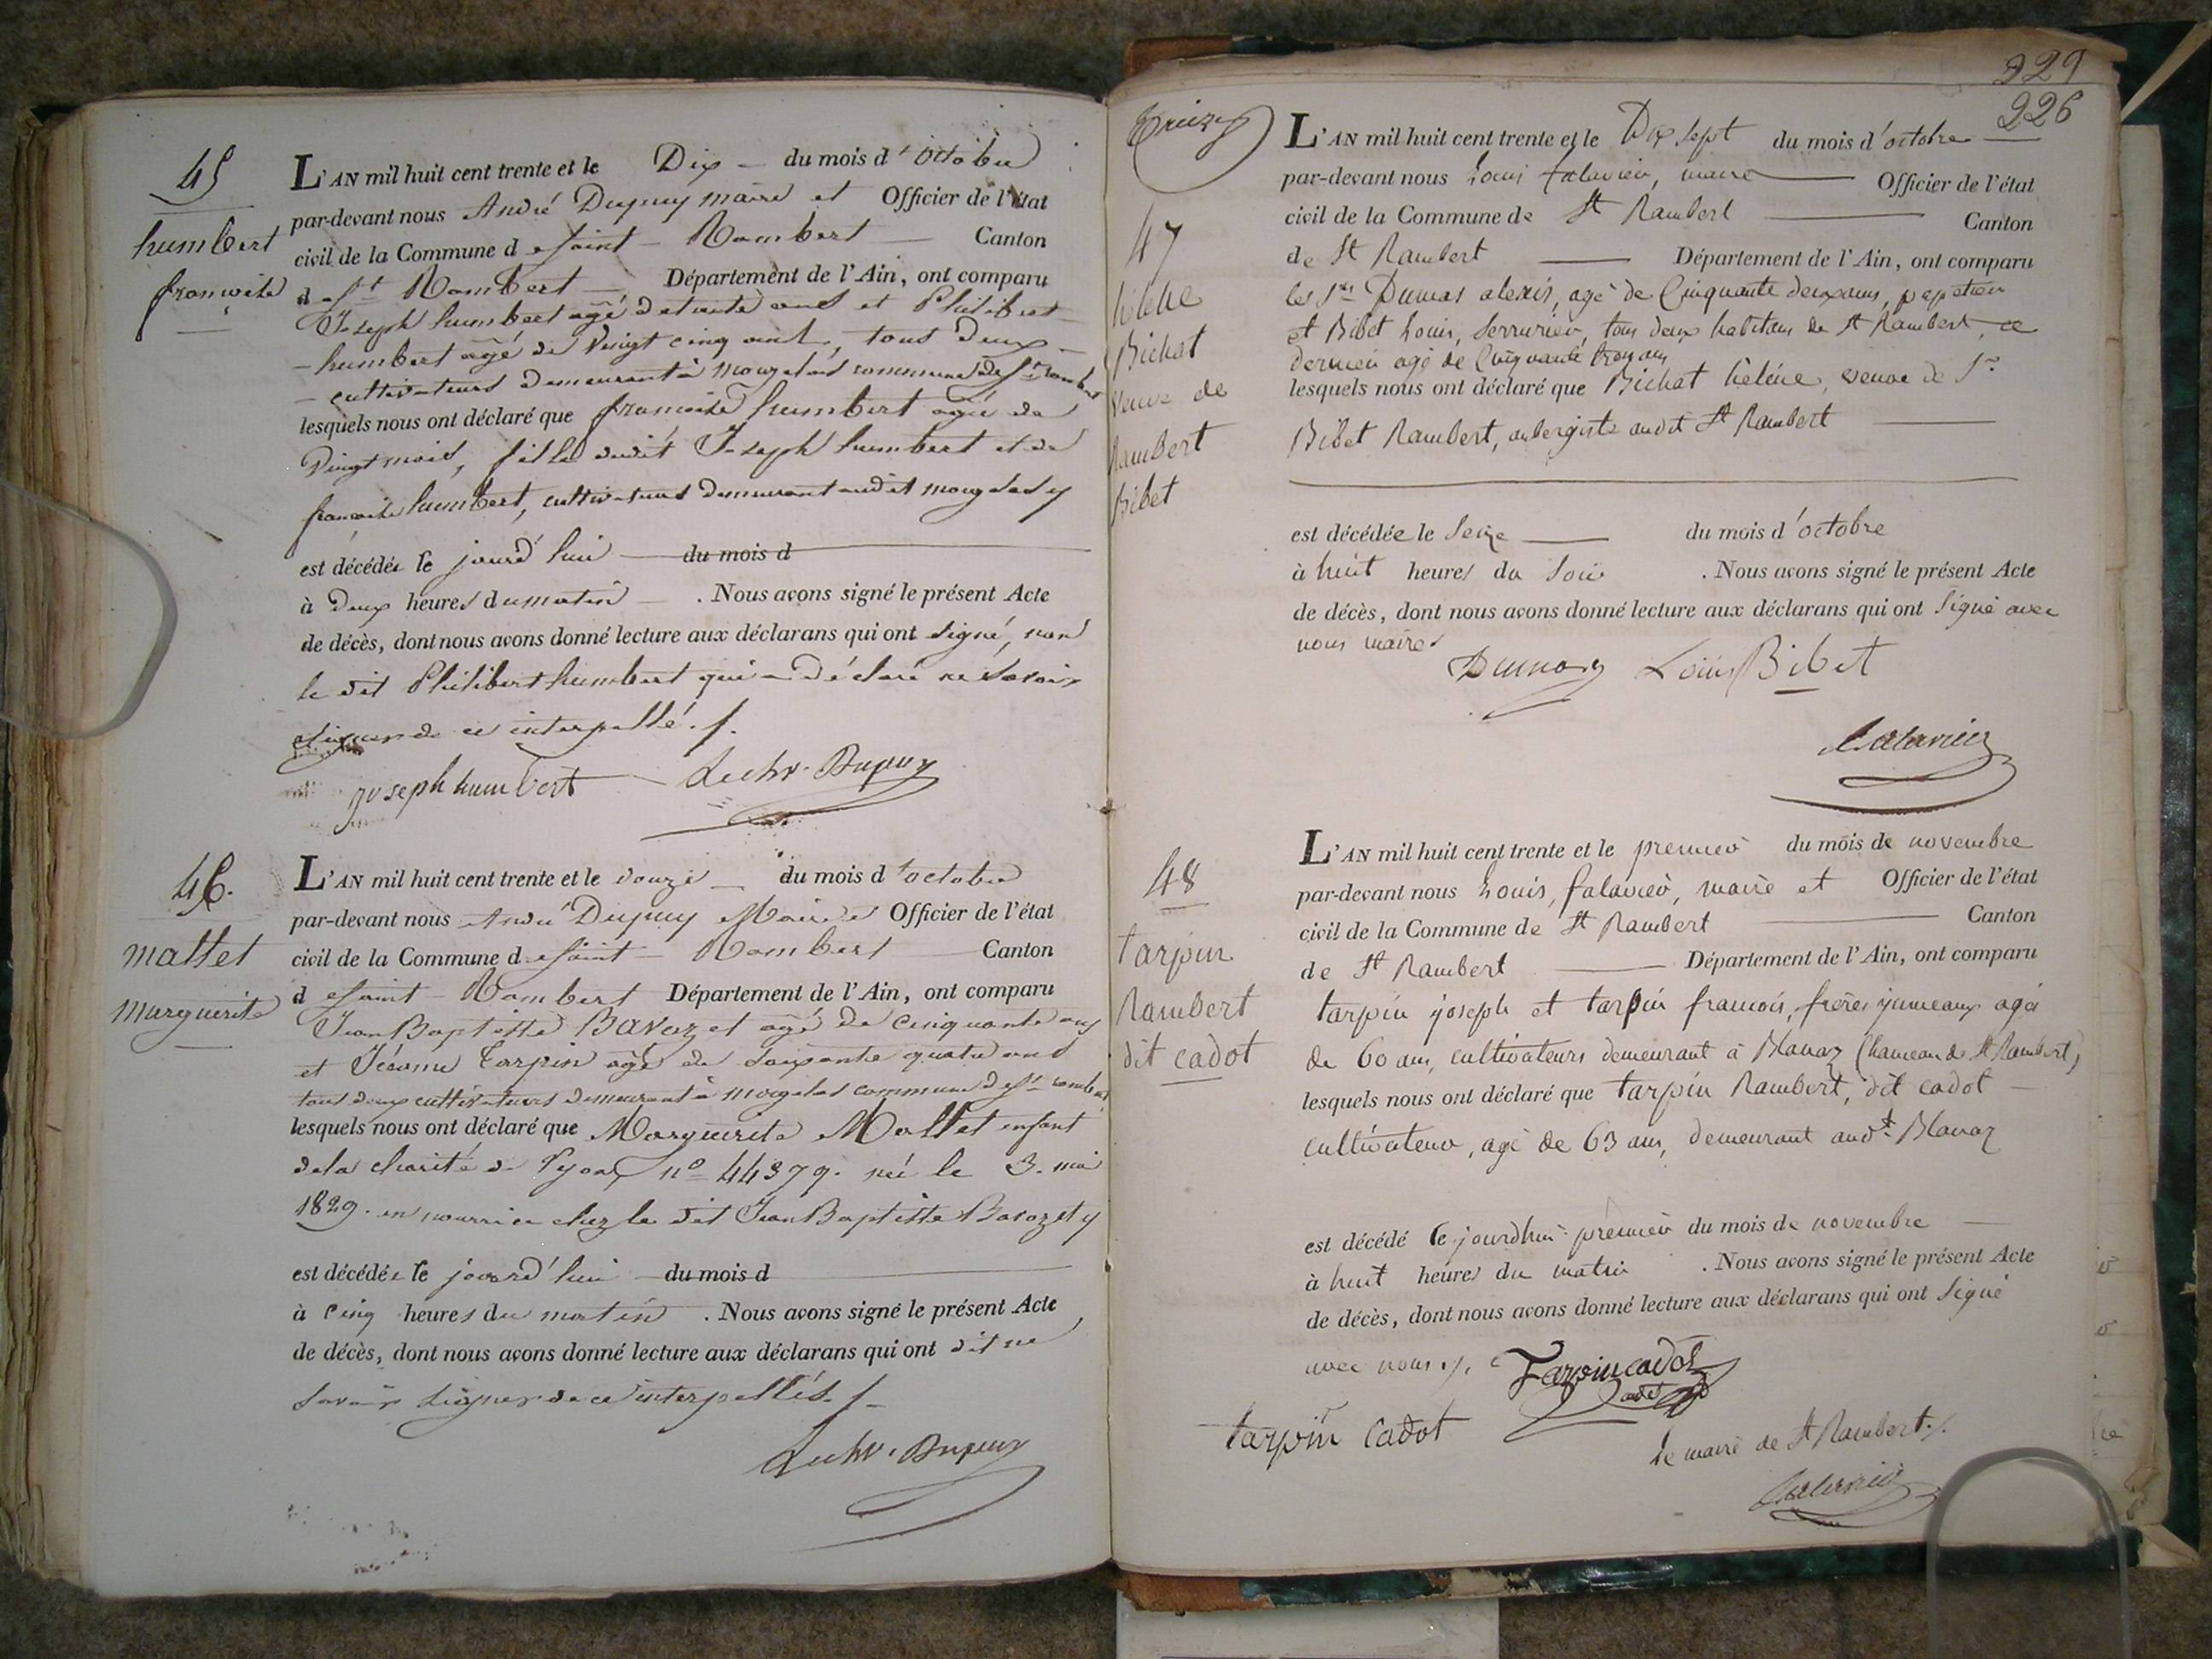 45
humbert
francoise
L'AN mil huit cent trente et le Dix du mois d'octobre
par-devant nous André Dupuy maire et Officier de l'état
civil de la Commune de Saint-Rambert Canton
de St Rambert Département de l'Ain, ont comparu
Joseph humbert agé de trente ans et Philibert
humbert agé de vingt cinq ans, tous deux
cultivateurs demeurant à mongelas commune de St rambert
lesquels nous ont déclaré que francoise humbert agée de
vingt mois, fille dudit Joseph humbert et de
francoise humbert, cultivateurs demeurant audit mongelas y
est décédée le jourd'hui du mois d
à Deux heures du matin. Nous avons signé le présent Acte
de décès, dont nous avons donné lecture aux déclarans qui ont signé, non
le dit Philibert humbert qui a déclaré ne savoir
signer de ce interpellé./.
joseph humbert Dupuy
46.
mallet
marguerite
L'AN mil huit cent trente et le douze du mois d'octobre
par-devant nous André Dupuy Maire Officier de l'état
civil de la Commune de Saint-Rambert Canton
de Saint-Rambert Département de l'Ain, ont comparu
Jean Baptiste Bavozet agé de cinquante ans
et Jérome Tarpin agé de soixante quatre ans
tous deux cultivateurs demeurant à mongelas commune de St rambert
lesquels nous ont déclaré que Marguerite Mallet enfant
de la charité de Lyon, no 44379. né le 3. mai
1829. en nourrice chez le dit Jean Baptiste Bavozet y
est décédée le jourd'hui du mois d
à cinq heures du matin. Nous avons signé le présent Acte
de décès, dont nous avons donné lecture aux déclarans qui ont dit ne
savoir signer de ce interpellés./.
Dupuy
229
226
47
hélène
Bichat
veuve de
Rambert
Bibet
L'AN mil huit cent trente et le Dix sept du mois d'octobre
par-devant nous Louis falavier, maire Officier de l'état
civil de la Commune de St Rambert Canton
de St Rambert Département de l'Ain, ont comparu
les Srs Dumas alexis, agé de Cinquante deux ans, papetier
et Bibet Louis, serrurier, tous deux habitans de St Rambert, ce
dernier agé de Cinquante trois ans
lesquels nous ont déclaré que Bichat hélène, veuve de Sr
Bibet Rambert, aubergiste audit St Rambert
est décédée le seize du mois d'octobre
à huit heures du soir. Nous avons signé le présent Acte
de décès, dont nous avons donné lecture aux déclarans qui ont signé avec
nous maire
Dumas Louis Bibet
falavier
48
tarpin
Rambert
dit cadot
L'AN mil huit cent trente et le premier du mois de novembre
par-devant nous Louis, falavier, maire et Officier de l'état
civil de la Commune de St Rambert Canton
de St Rambert Département de l'Ain, ont comparu
tarpin joseph et tarpin francois, frères jumeaux agés
de 60 ans, cultivateurs demeurant à Blanaz (hameau de St Rambert)
lesquels nous ont déclaré que tarpin Rambert, dit cadot
cultivateur, agé de 63 ans, demeurant audt. Blanaz
est décédé le jourdhui premier du mois de novembre
à huit heures du matin. Nous avons signé le présent Acte
de décès, dont nous avons donné lecture aux déclarans qui ont signé
avec nous ./. Tarpin cadot
tarpin cadot
le maire de St Rambert./.
falavier